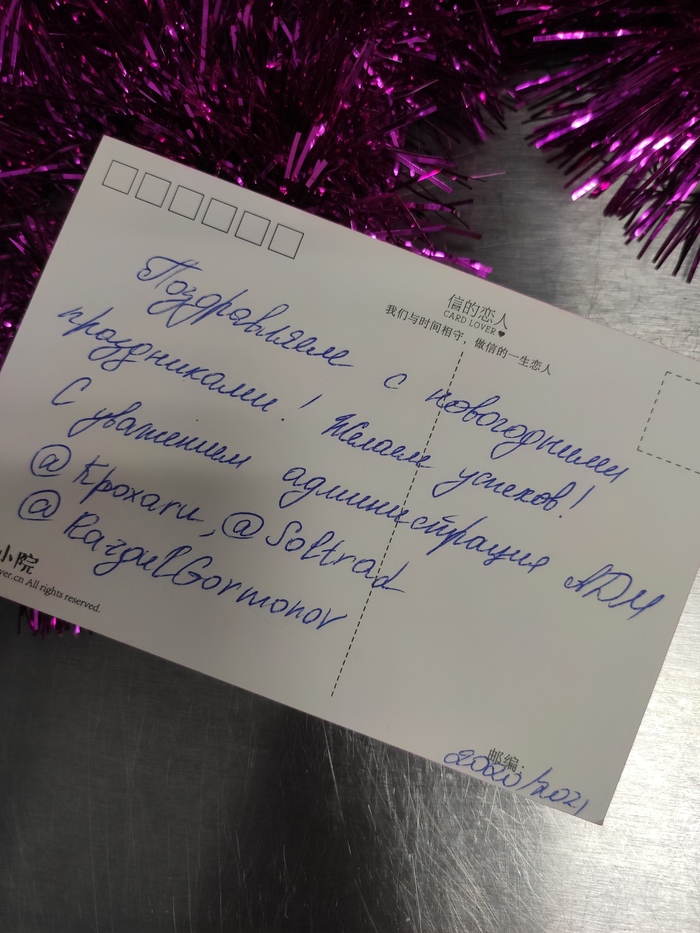 信的恋人
CARD LOVER
我们与时间相守，做信的一生恋人
Поздравляем с новогодними
праздниками! Желаем успехов!
С уважением администрация ADM
@Крохаги, @Soltrad
@RazgulGormonov
小院
ver.cn All rights reserved.
邮编:
2020/2021